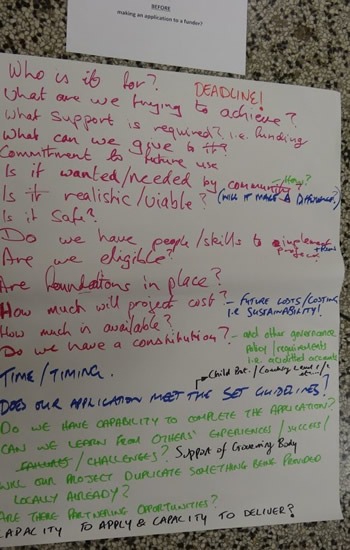 BEFORE
making an application to a funder?
Who is it for?
DEADLINE!
What are we trying to achieve?
What support is required? i.e. funding
What can we give to it?
Commitment to future use
- How?
Is it wanted/needed by community
Is it realistic/viable? (WILL IT MAKE A DIFFERENCE?)
Is it safe?
Do we have people/skills to implement
project
Are we eligible?
Are foundations in place?
How much will project cost? - FUTURE COSTS/COSTING
i.e. SUSTAINABILITY!
How much is available?
Do we have a constitution? - and other governance
policy/requirements
i.e. accredited accounts
TIME/TIMING.
Child Prot. / Country Level /
DOES OUR APPLICATION MEET THE SET GUIDELINES?
DO WE HAVE CAPABILITY TO COMPLETE THE APPLICATION?
CAN WE LEARN FROM OTHERS' EXPERIENCES/SUCCESS/
FAILURES/CHALLENGES? Support of Governing Body
WILL OUR PROJECT DUPLICATE SOMETHING BEING PROVIDED
LOCALLY ALREADY?
ARE THERE PARTNERING OPPORTUNITIES?
CAPACITY TO APPLY & CAPACITY TO DELIVER?